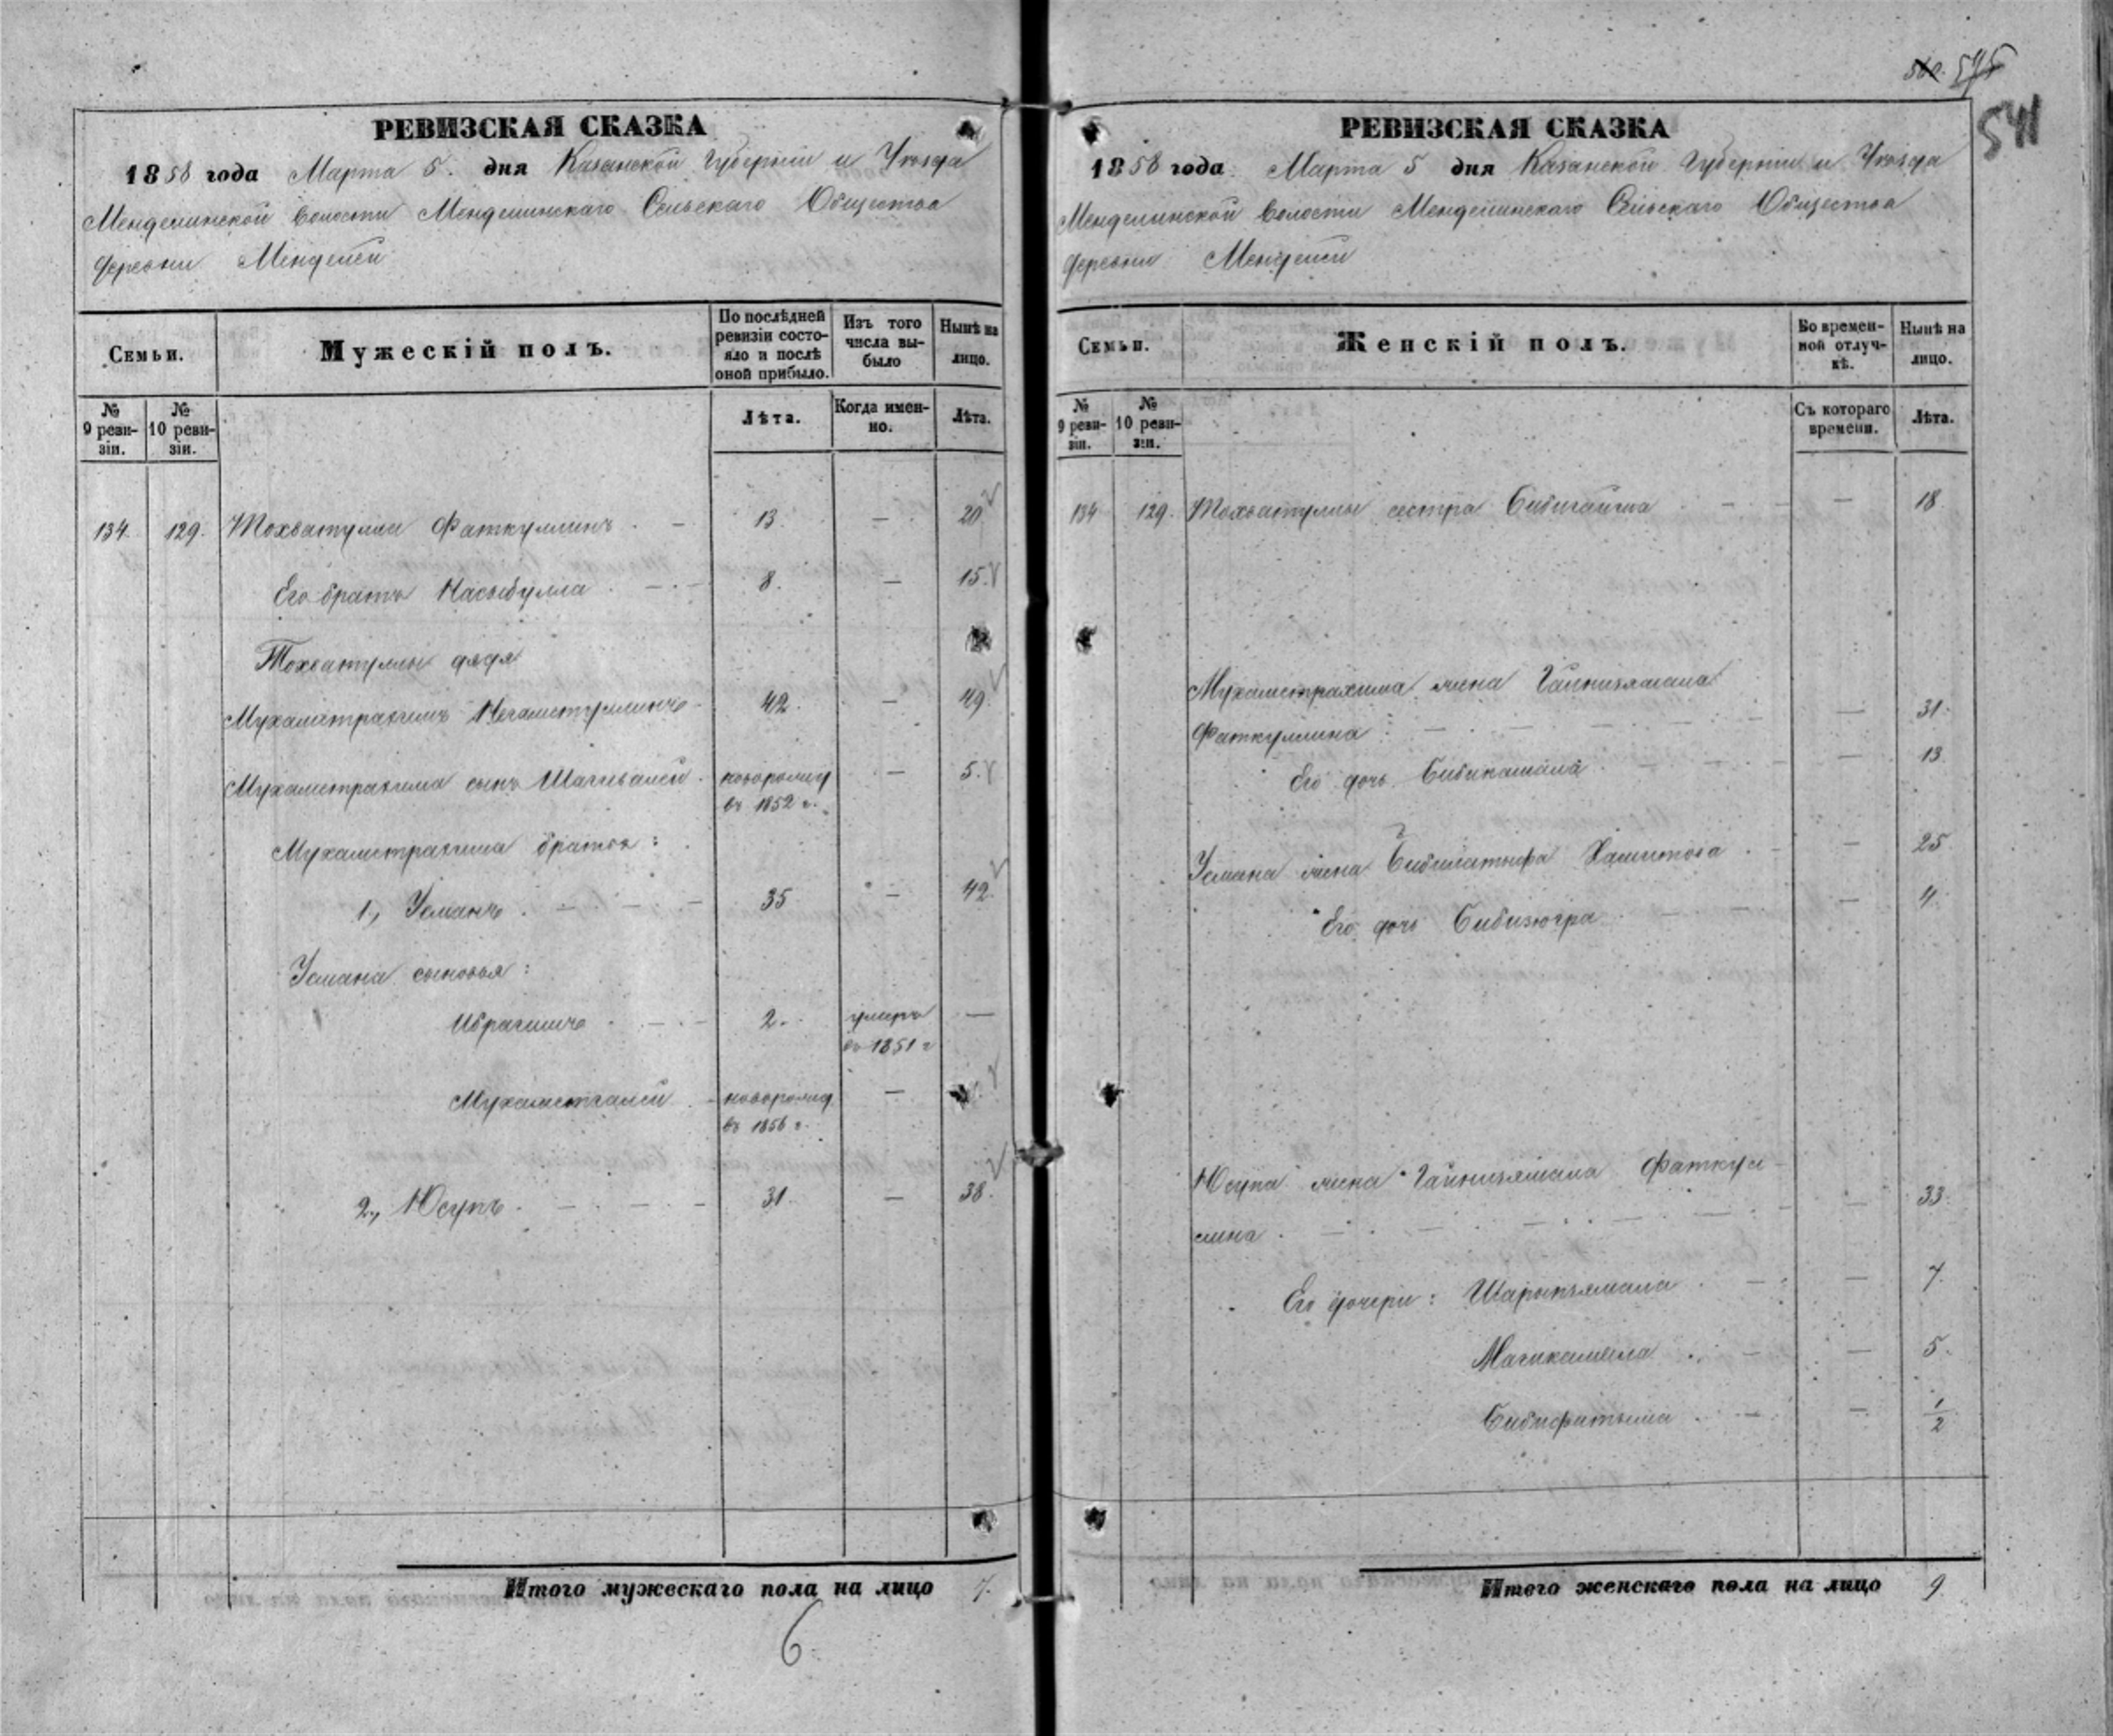 560. 575
541
РЕВИЗСКАЯ СКАЗКА
1858 года Марта 5. дня Казанской Губерніи и Уѣзда
Менделинской Волости Менделинскаго Сельскаго Общества
Деревни Менделей
Семьи.
Мужескій полъ.
По послѣдней ревизіи состояло и послѣ оной прибыло.
Изъ того числа выбыло
Нынѣ на лицо.
№ 9 ревизіи.
№ 10 ревизіи.
Лѣта.
Когда именно.
Лѣта.
134. 129. Тохватулла Фаткуллинъ 13. — 20
Его братъ Насыбулла 8. — 15.
Тохватуллы дядя
Мухаметрахимъ Негаметуллинъ 42. — 49.
Мухаметрахима сынъ Шагивалей новорожд — 5.
въ 1852 г.
Мухаметрахима братья:
1, Усманъ 35 — 42.
Усмана сыновья:
Ибрагимъ 2. умеръ —
въ 1851 г
Мухаметгалей новорожд. —
въ 1856 г.
2, Юсупъ 31. — 38.
Итого мужескаго пола на лицо 7.
6
РЕВИЗСКАЯ СКАЗКА
1858 года Марта 5 дня Казанской Губерніи и Уѣзда
Менделинской Волости Менделинскаго Сельскаго Общества
Деревни Менделей
Семьи.
Женскій полъ.
Во временной отлучкѣ.
Нынѣ на лицо.
№ 9 ревизіи.
№ 10 ревизіи.
Съ котораго времени.
Лѣта.
134 129. Тохватуллы сестра — 18
Мухаметрахима жена Гайнизямала
Фаткуллина — 31.
Его дочь Бибикамала — 13
Усмана жена Бибилатыфа Хамитова — 25
Его дочь Бибизюгра — 4.
Юсупа жена Гайнизямала Фаткул-
лина — 33.
Его дочери: Шарипзямала — 7.
Магикамала — 5.
Бибифатыма — 1/2
Итого женскаго пола на лицо 9.